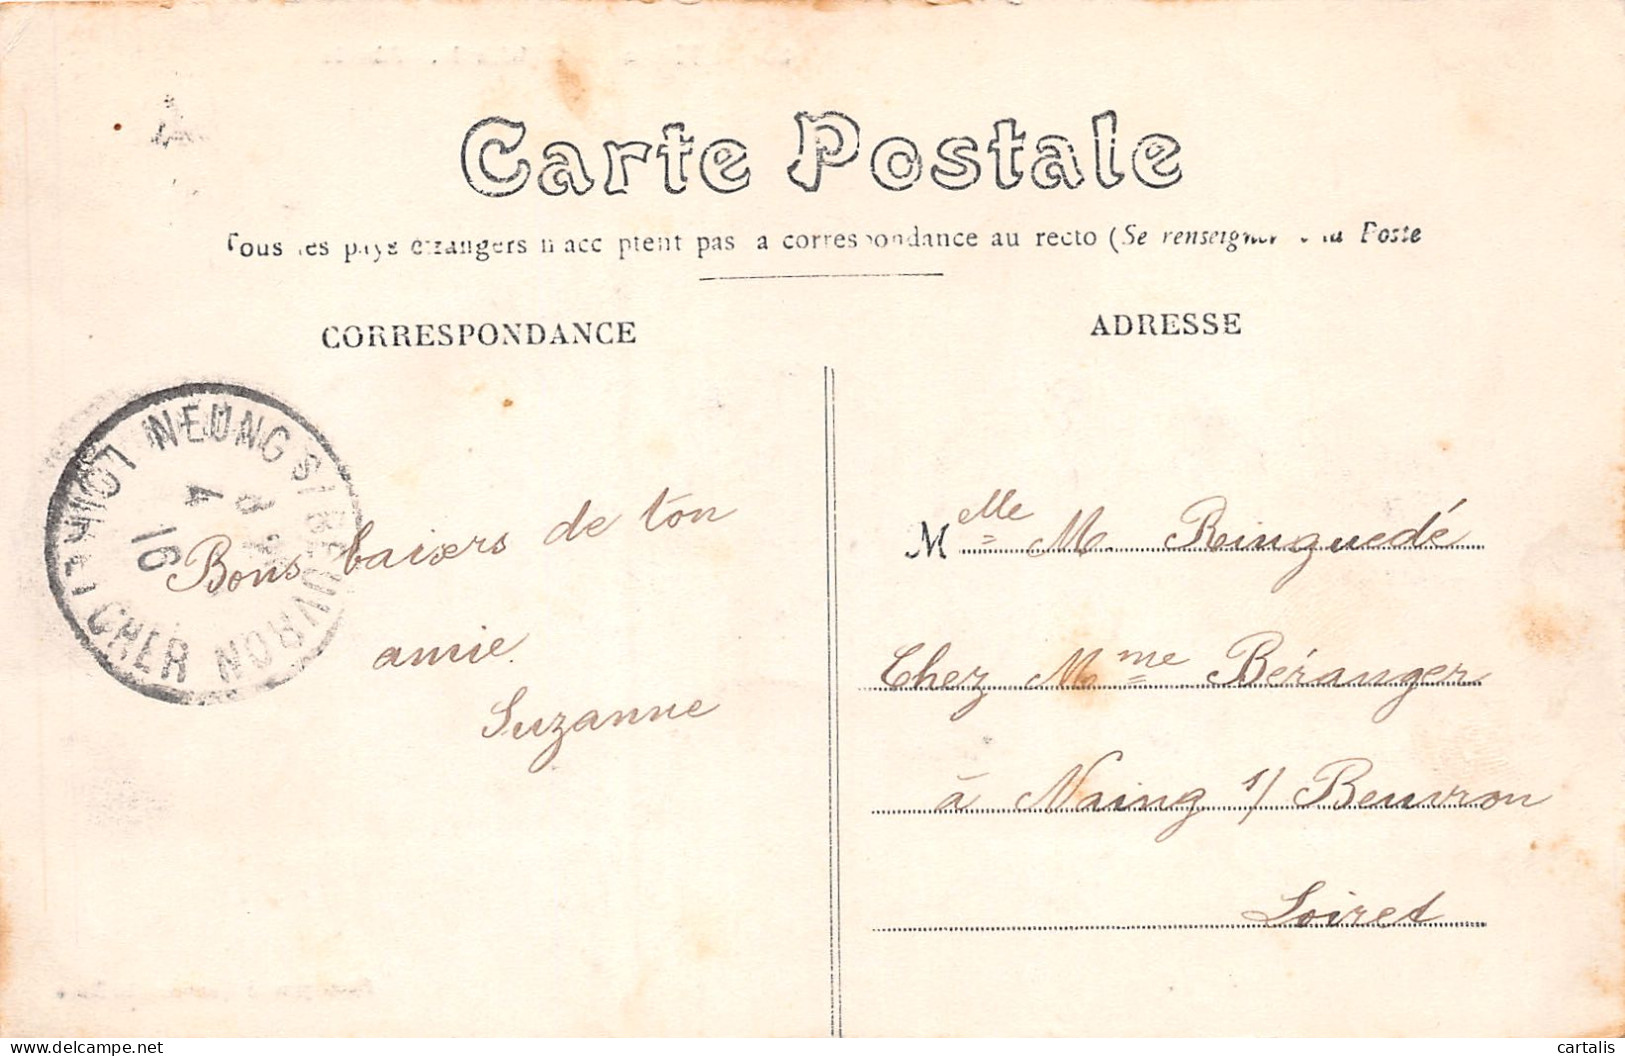 Carte Postale
Tous les pays étrangers n'acceptent pas la correspondance au recto (Se renseigner à la Poste
CORRESPONDANCE
ADRESSE
NEUNG S/ BEUVRON
LOIR-ET-CHER
4
16
Bons baisers de ton
amie.
Suzanne
Melle M. Ringuedé
Chez Mme Béranger
à Naing s/ Beuvron
Loiret
delcampe.net
cartalis